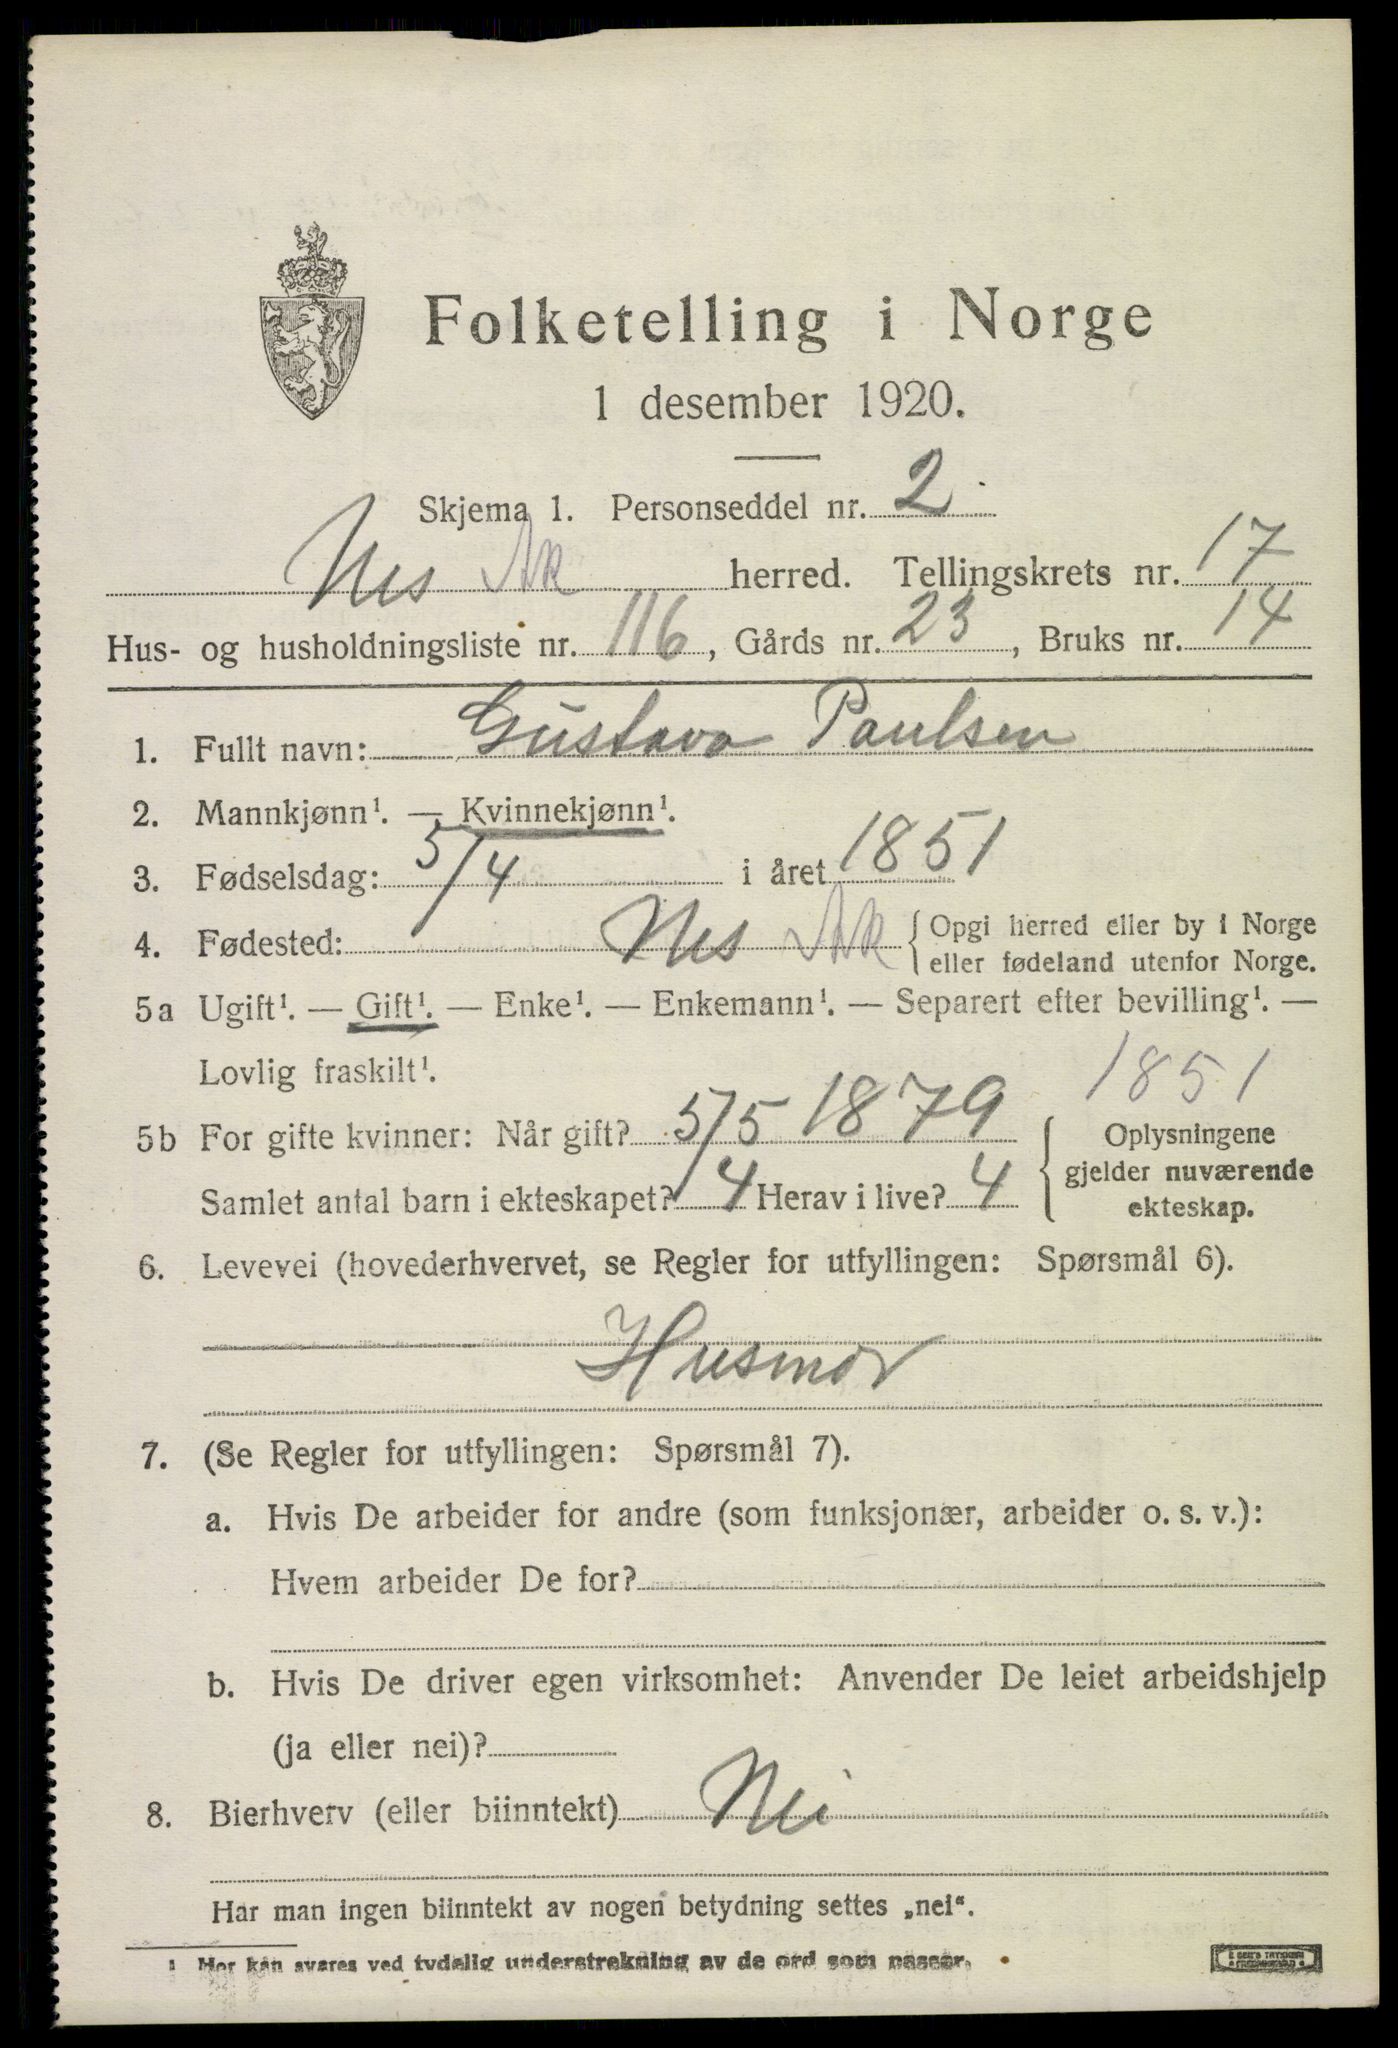 Folketelling i Norge
1 desember 1920.
Skjema 1. Personseddel nr. 2
Nes Ak herred. Tellingskrets nr. 17
Hus- og husholdningsliste nr. 116, Gårds nr. 23, Bruks nr. 14
1. Fullt navn: Gustava Paulsen
2. Mannkjønn¹. — Kvinnekjønn¹.
3. Fødselsdag: 5/4 i året 1851
4. Fødested: Nes Ak { Opgi herred eller by i Norge
eller fødeland utenfor Norge.
5a Ugift¹. — Gift¹. — Enke¹. — Enkemann¹. — Separert efter bevilling¹. —
Lovlig fraskilt¹.
1851
5b For gifte kvinner: Når gift? 5/5 1879
Samlet antal barn i ekteskapet? 4 Herav i live? 4
Oplysningene
gjelder nuværende
ekteskap.
6. Levevei (hovederhvervet, se Regler for utfyllingen: Spørsmål 6).
Husmor
7. (Se Regler for utfyllingen: Spørsmål 7).
a. Hvis De arbeider for andre (som funksjonær, arbeider o. s. v.):
Hvem arbeider De for?
b. Hvis De driver egen virksomhet: Anvender De leiet arbeidshjelp
(ja eller nei)?
8. Bierhverv (eller biinntekt) Nei
Har man ingen biinntekt av nogen betydning settes „nei“.
¹ Her kan svares ved tydelig understrekning av de ord som passer.